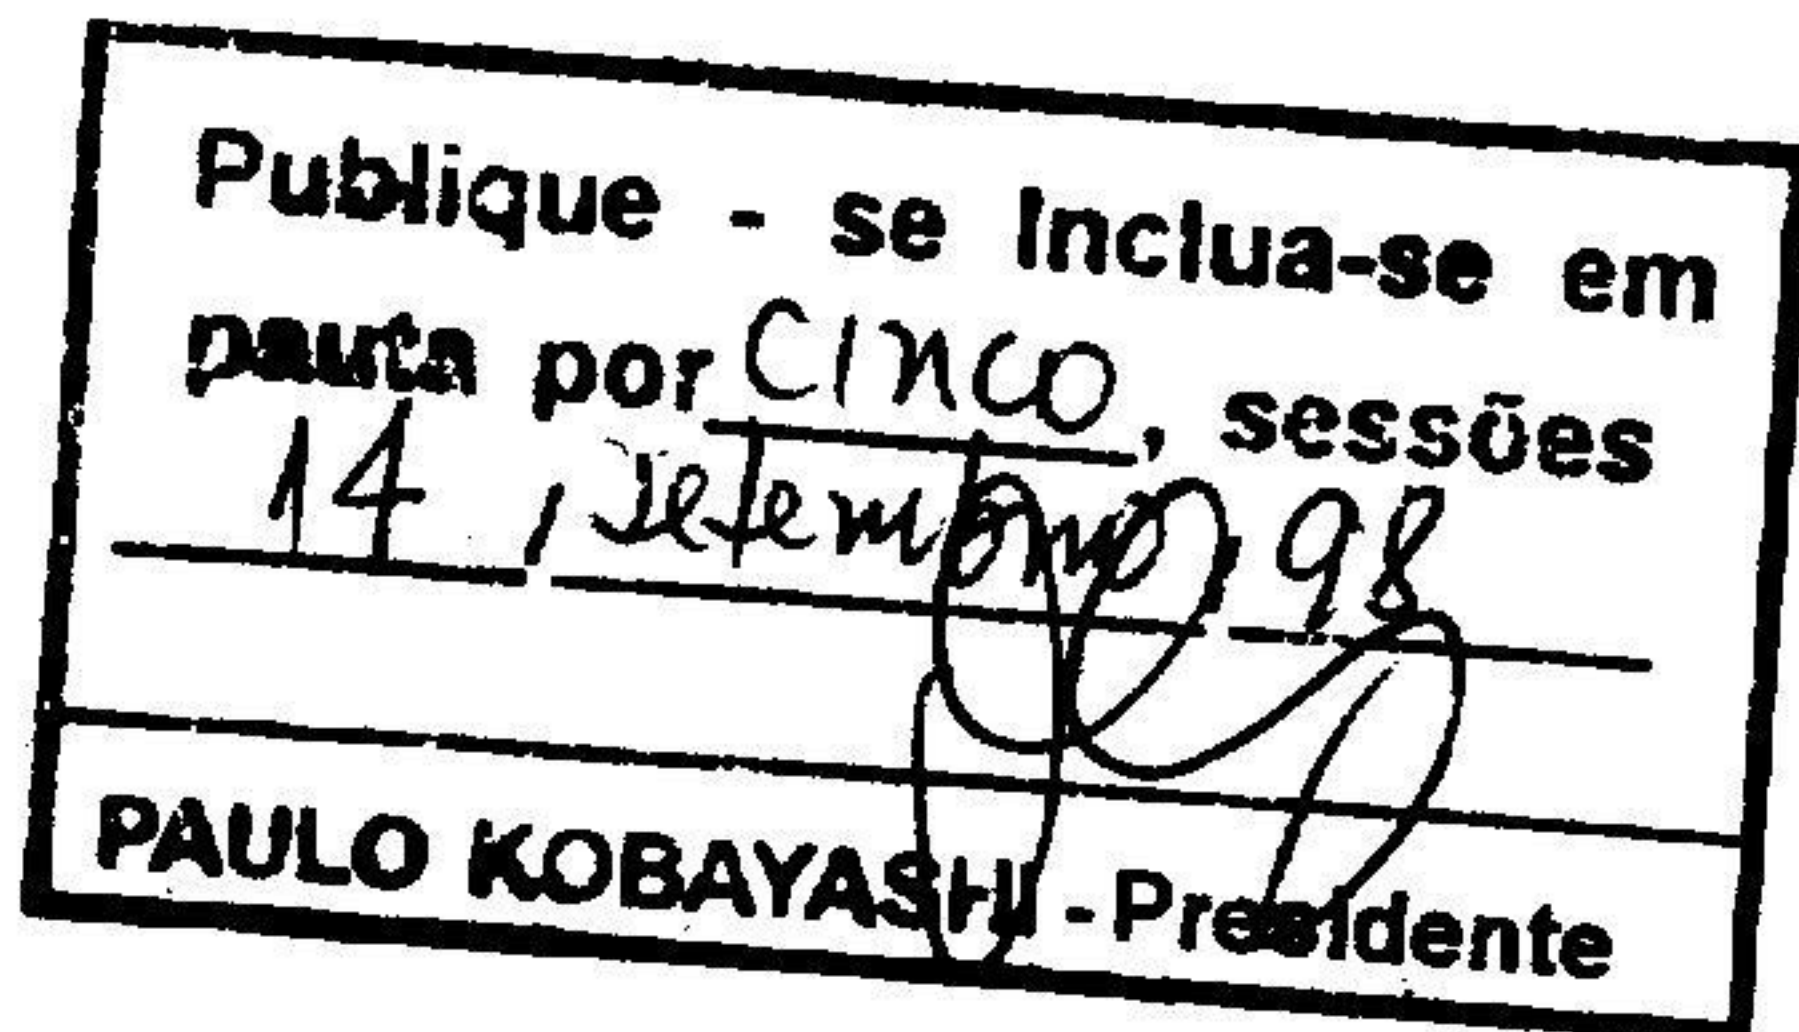 Publique - se Inclua-se em
pauta por Cinco, sessões
14 / Setembro / 98
PAULO KOBAYASHI - Presidente